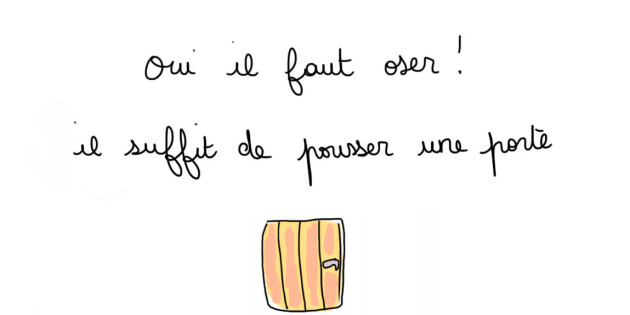 Oui il faut oser !
il suffit de pousser une porte